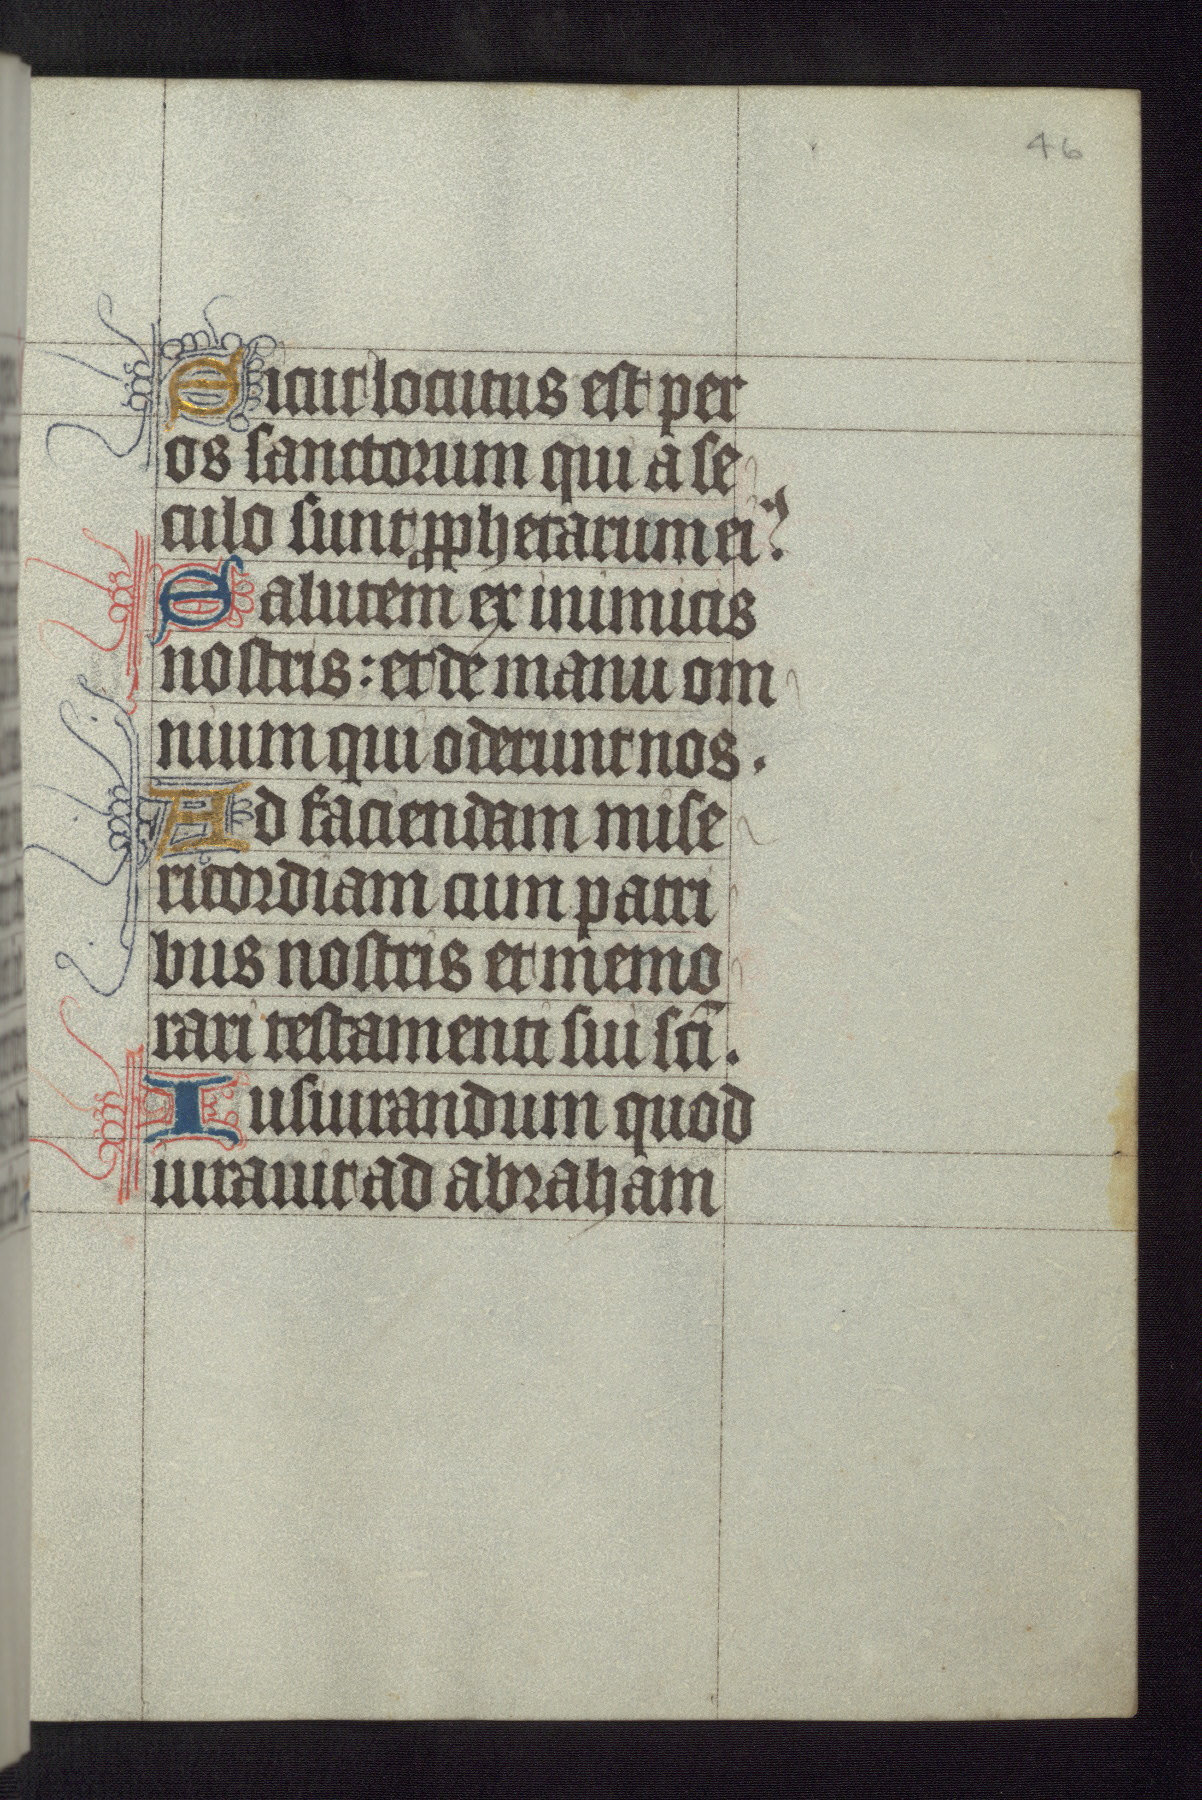 46
Sicut locutus est per
os sanctorum qui a se
culo sunt pphetarum ei⁹.
Salutem ex inimicis
nostris: et de manu om
nium qui oderunt nos.
Ad faciendam mise
ricordiam cum patri
bus nostris et memo
rari testamenti sui sci̅.
Iusiurandum quod
iurauit ad abraham